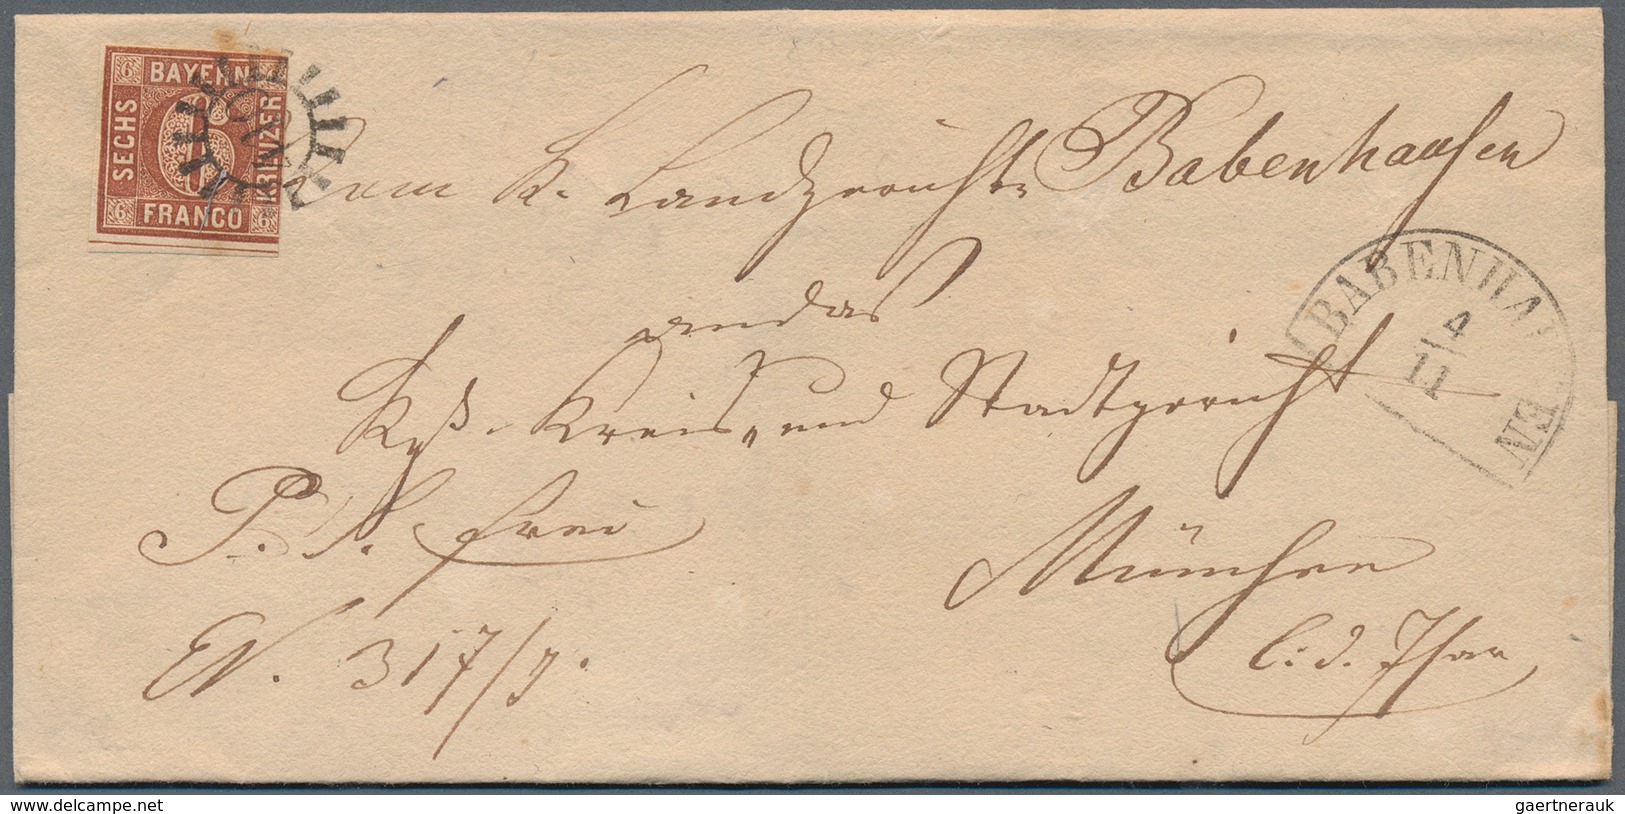 6 BAYERN 6
SECHS
KREUZER
6 FRANCO 6
Vom K. Landgerichte Babenhausen
an das
Kgl. Kreis- und Stadtgericht
P. S. frei
München
EN. 317/
l. d. Isar
BABENHAUSEN
4
11
delcampe.net
gaertnerauk